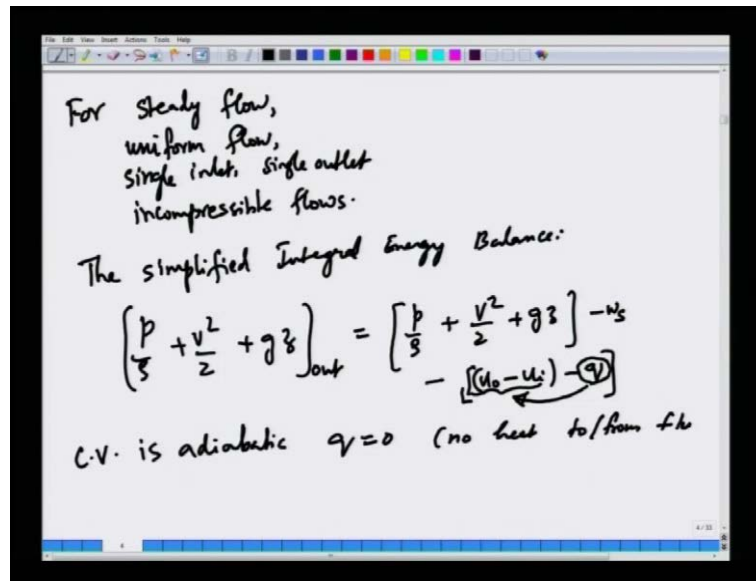 File Edit View Insert Actions Tools Help
For steady flow,
uniform flow,
single inlet, single outlet
incompressible flows.
The simplified Integral Energy Balance:
[p/ρ + v²/2 + gz]out = [p/ρ + v²/2 + gz] - ws
- [(uo - ui) - q]
C.V. is adiabatic q=0 (no heat to/from flu
4 / 33
4